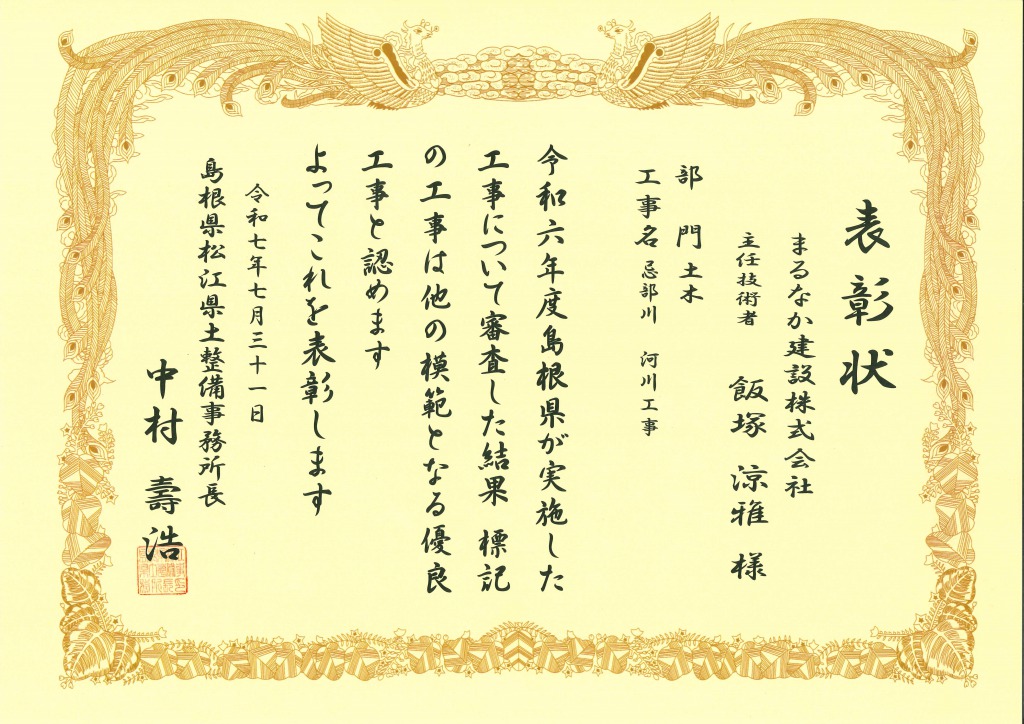 表彰状
まるなか建設株式会社
主任技術者 飯塚 涼雅 様
部門 土木
工事名 忌部川 河川工事
令和六年度島根県が実施した
工事について審査した結果 標記
の工事は他の模範となる優良
工事と認めます
よってこれを表彰します
令和七年七月三十一日
島根県松江県土整備事務所長
中村 壽浩